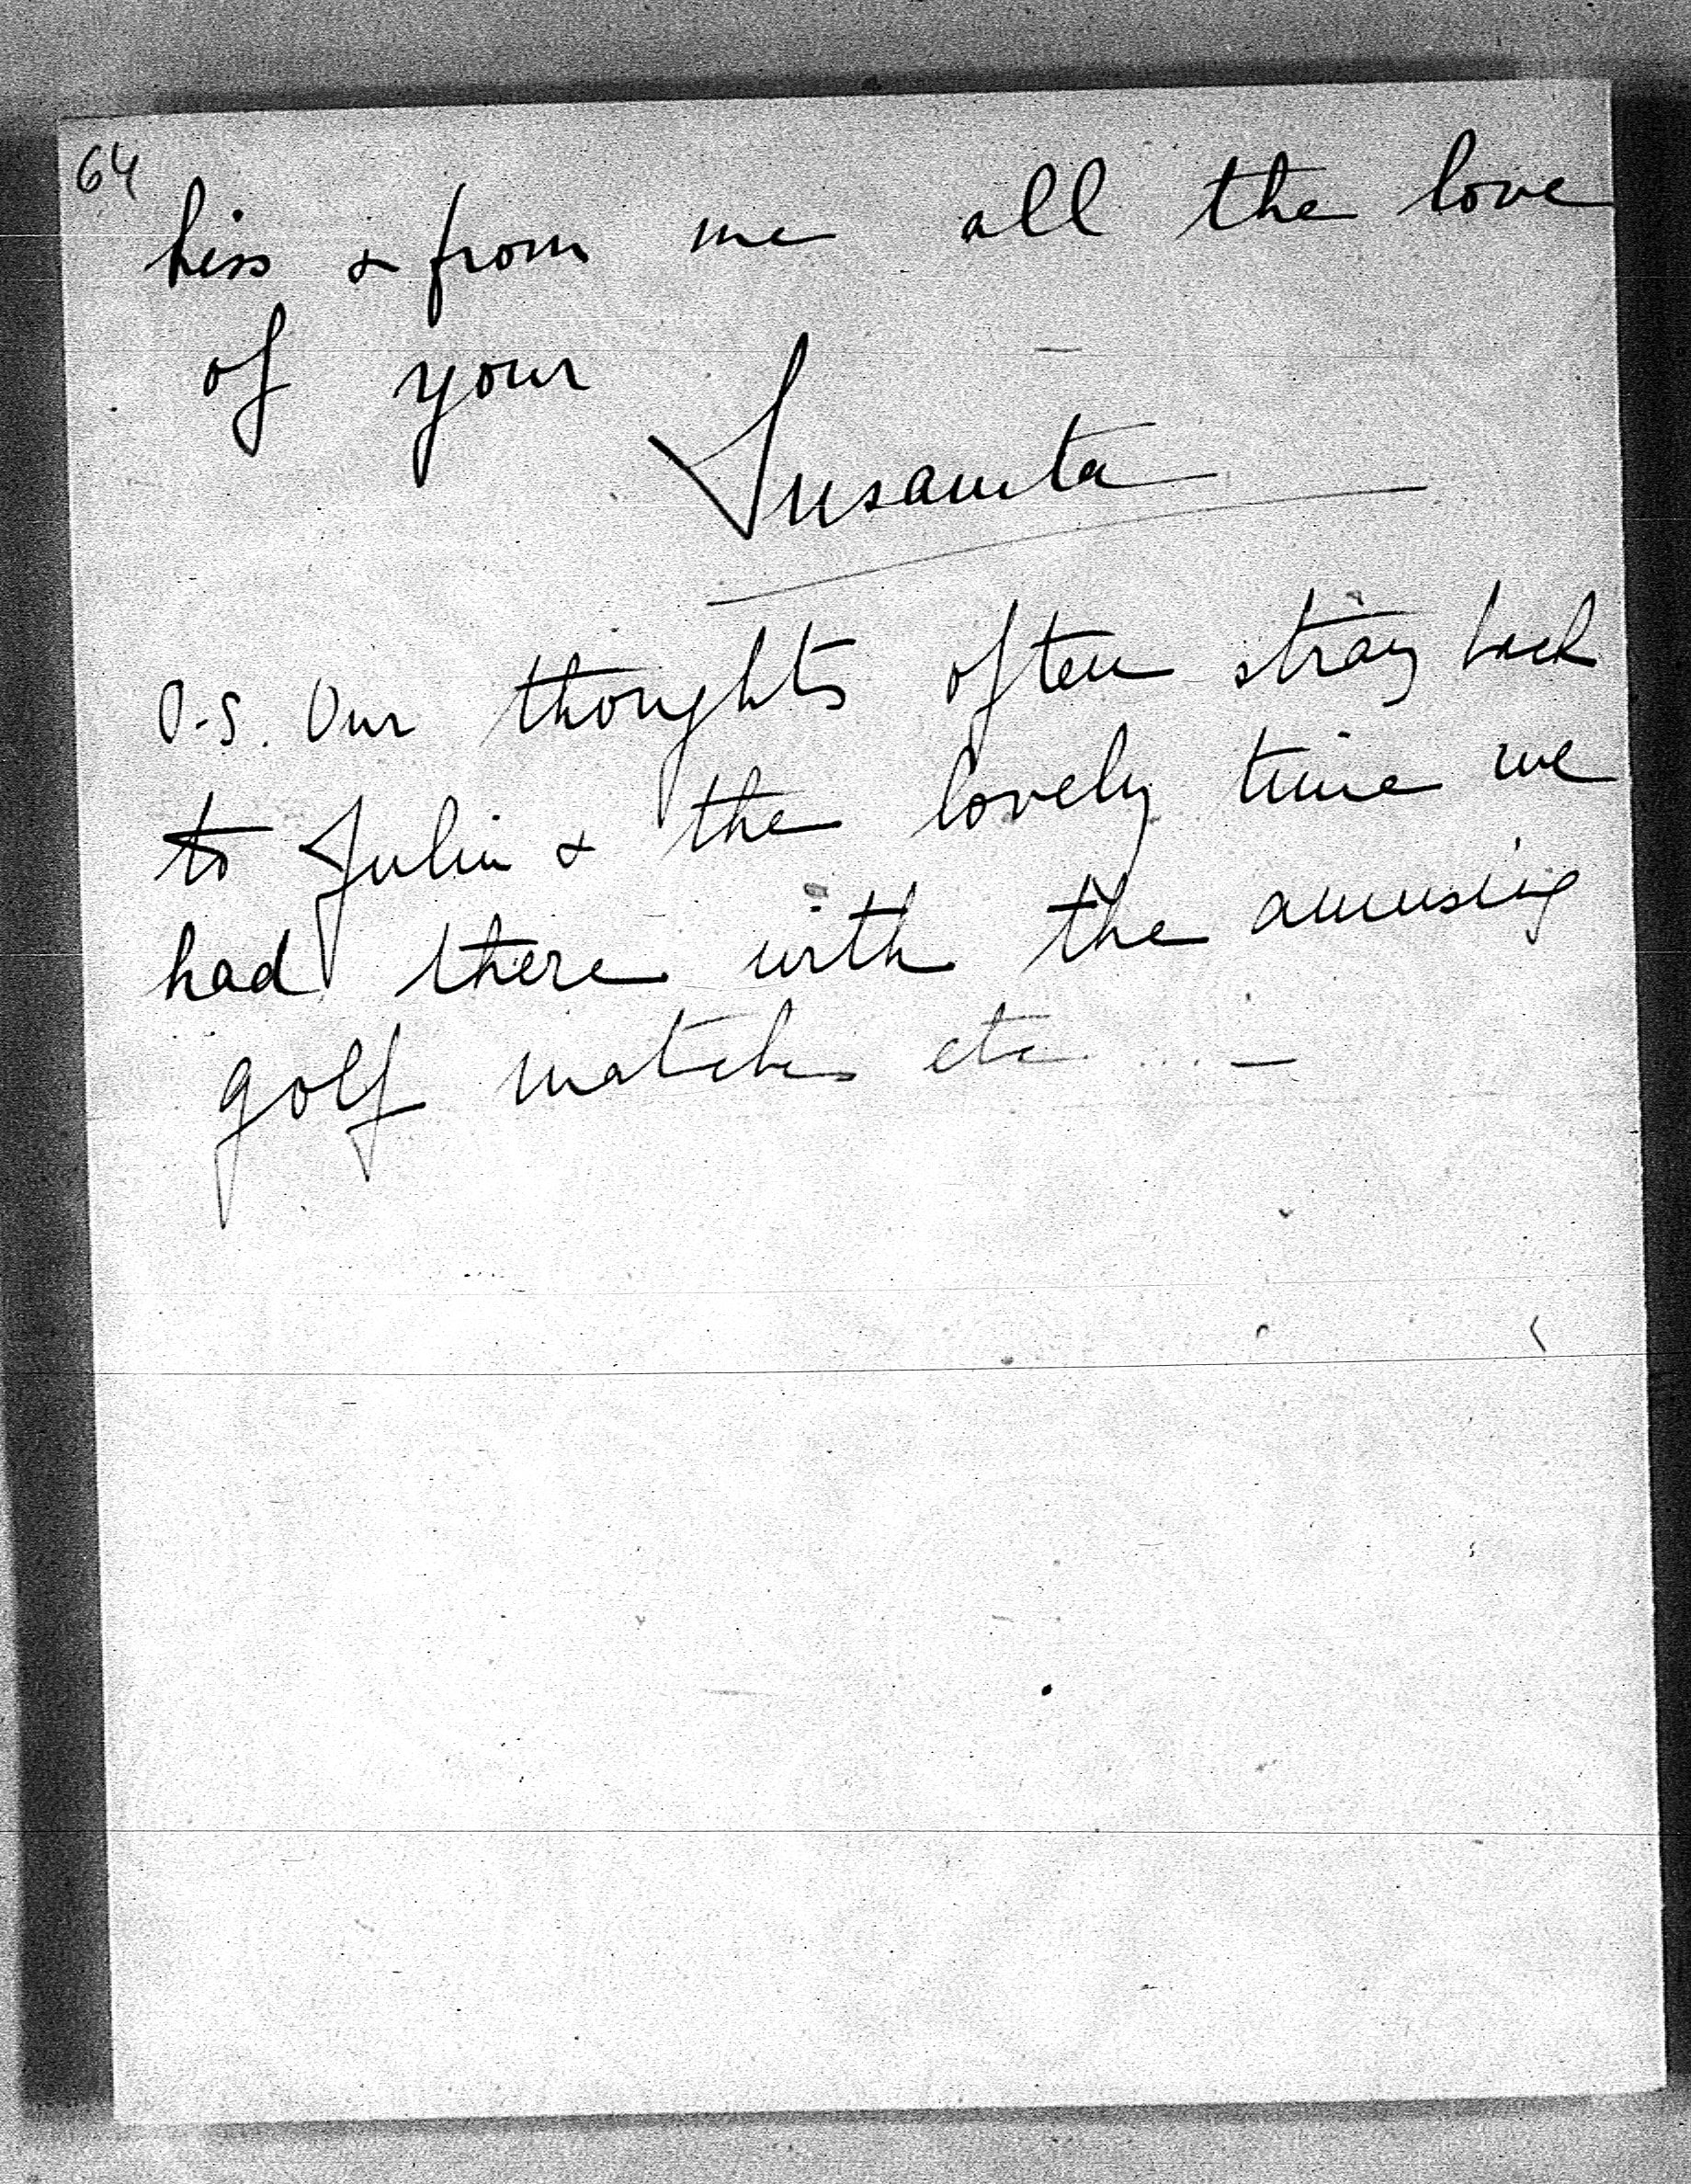 64
kiss & from me all the love
of your
Susanita
P.S. Our thoughts often stray back
to Julin & the lovely time we
had there with the amusing
golf matches etc ... –